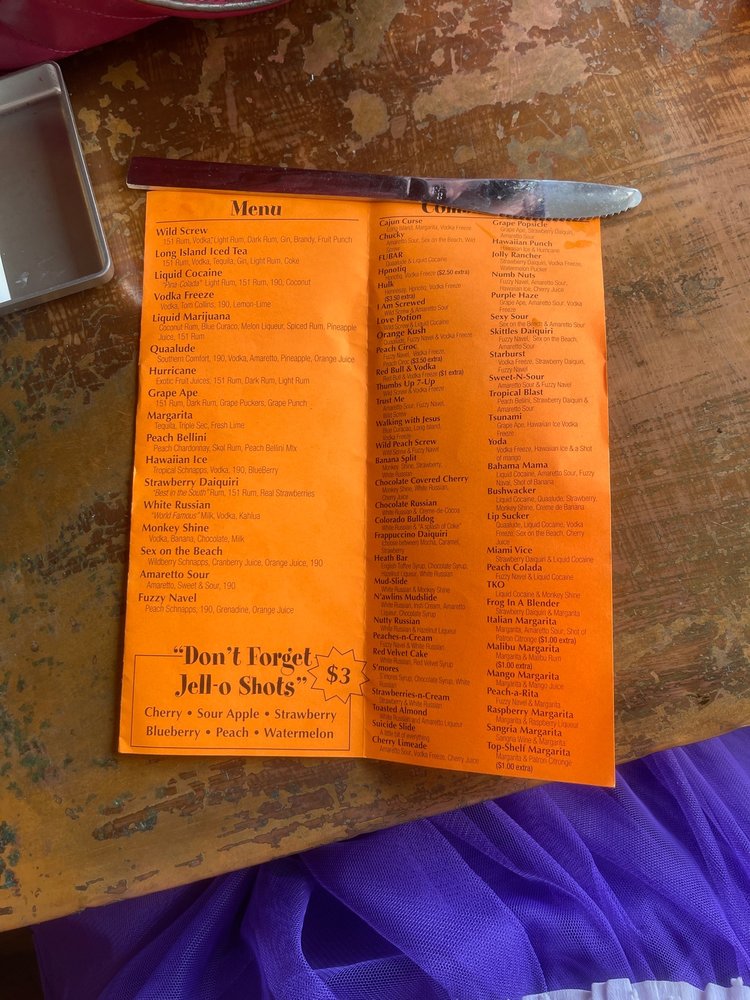 Menu
Wild Screw
151 Rum, Vodka, Light Rum, Dark Rum, Gin, Brandy, Fruit Punch
Long Island Iced Tea
151 Rum, Vodka, Tequila, Gin, Light Rum, Coke
Liquid Cocaine
"Pina Colada" Light Rum, 151 Rum, 190, Coconut
Vodka Freeze
Vodka, Tom Collins, 190, Lemon-Lime
Liquid Marijuana
Coconut Rum, Blue Curaco, Melon Liqueur, Spiced Rum, Pineapple
Juice, 151 Rum
Quaalude
Southern Comfort, 190, Vodka, Amaretto, Pineapple, Orange Juice
Hurricane
Exotic Fruit Juices, 151 Rum, Dark Rum, Light Rum
Grape Ape
151 Rum, Dark Rum, Grape Puckers, Grape Punch
Margarita
Tequila, Triple Sec, Fresh Lime
Peach Bellini
Peach Chardonnay, Skol Rum, Peach Bellini Mix
Hawaiian Ice
Tropical Schnapps, Vodka, 190, BlueBerry
Strawberry Daiquiri
"Best in the South" Rum, 151 Rum, Real Strawberries
White Russian
"World Famous" Milk, Vodka, Kahlua
Monkey Shine
Vodka, Banana, Chocolate, Milk
Sex on the Beach
Wildberry Schnapps, Cranberry Juice, Orange Juice, 190
Amaretto Sour
Amaretto, Sweet & Sour, 190
Fuzzy Navel
Peach Schnapps, 190, Grenadine, Orange Juice
"Don't Forget
Jell-o Shots"
$3
Cherry • Sour Apple • Strawberry
Blueberry • Peach • Watermelon
Cajun Curse
Long Island, Margarita, Vodka Freeze
Chucky
Amaretto Sour, Sex on the Beach, Wild
Screw
FUBAR
Quaalude & Liquid Cocaine
Hpnotiq
Hpnotiq, Vodka Freeze ($2.50 extra)
Hulk
Hennessy, Hpnotiq, Vodka Freeze
($3.50 extra)
I Am Screwed
Wild Screw & Amaretto Sour
Love Potion
Wild Screw & Liquid Cocaine
Orange Kush
Quaalude, Fuzzy Navel & Vodka Freeze
Peach Ciroc
Fuzzy Navel, Vodka Freeze,
Peach Ciroc ($3.50 extra)
Red Bull & Vodka
Red Bull & Vodka Freeze ($1 extra)
Thumbs Up 7-Up
Wild Screw & Vodka Freeze
Trust Me
Amaretto Sour, Fuzzy Navel,
Wild Screw
Walking with Jesus
Blue Curacao, Long Island,
Vodka Freeze
Wild Peach Screw
Wild Screw & Fuzzy Navel
Banana Split
Monkey Shine, Strawberry,
White Russian
Chocolate Covered Cherry
Monkey Shine, White Russian,
Cherry Juice
Chocolate Russian
White Russian & Creme-de-Cocoa
Colorado Bulldog
White Russian & "A splash of Coke"
Frappuccino Daiquiri
(choose between Mocha, Caramel,
Strawberry
Heath Bar
English Toffee Syrup, Chocolate Syrup,
Hazelnut Liqueur, White Russian
Mud-Slide
White Russian & Monkey Shine
N'awlins Mudslide
White Russian, Irish Cream, Amaretto
Liqueur, Chocolate Syrup
Nutty Russian
White Russian & Hazelnut Liqueur
Peaches-n-Cream
Fuzzy Navel & White Russian
Red Velvet Cake
White Russian, Red Velvet Syrup
S'mores
S'mores Syrup, Chocolate Syrup, White
Russian
Strawberries-n-Cream
Strawberry & White Russian
Toasted Almond
White Russian and Amaretto Liqueur
Suicide Slide
A little bit of everything
Cherry Limeade
Amaretto Sour, Vodka Freeze, Cherry Juice
Grape Popsicle
Grape Ape, Strawberry Daiquiri,
Amaretto Sour
Hawaiian Punch
Hawaiian Ice & Hurricane
Jolly Rancher
Strawberry Daiquiri, Vodka Freeze,
Watermelon Pucker
Numb Nuts
Fuzzy Navel, Amaretto Sour,
Hawaiian Ice, Cherry Juice
Purple Haze
Grape Ape, Amaretto Sour, Vodka
Freeze
Sexy Sour
Sex on the Beach & Amaretto Sour
Skittles Daiquiri
Fuzzy Navel, Sex on the Beach,
Amaretto Sour
Starburst
Vodka Freeze, Strawberry Daiquiri,
Fuzzy Navel
Sweet-N-Sour
Amaretto Sour & Fuzzy Navel
Tropical Blast
Peach Bellini, Strawberry Daiquiri &
Amaretto Sour
Tsunami
Grape Ape, Hawaiian Ice Vodka
Freeze
Yoda
Vodka Freeze, Hawaiian Ice & a Shot
of mango
Bahama Mama
Liquid Cocaine, Amaretto Sour, Fuzzy
Navel, Shot of Banana
Bushwacker
Liquid Cocaine, Quaalude, Strawberry,
Monkey Shine, Creme de Banana
Lip Sucker
Quaalude, Liquid Cocaine, Vodka
Freeze, Sex on the Beach, Cherry
Juice
Miami Vice
Strawberry Daiquiri & Liquid Cocaine
Peach Colada
Fuzzy Navel & Liquid Cocaine
TKO
Liquid Cocaine & Monkey Shine
Frog In A Blender
Strawberry Daiquiri & Margarita
Italian Margarita
Margarita, Amaretto Sour, Shot of
Patron Citronge ($1.00 extra)
Malibu Margarita
Margarita & Malibu Rum
($1.00 extra)
Mango Margarita
Margarita & Mango Juice
Peach-a-Rita
Fuzzy Navel & Margarita
Raspberry Margarita
Margarita & Raspberry Liqueur
Sangria Margarita
Sangria Wine & Margarita
Top-Shelf Margarita
Margarita & Patron Citronge
($1.00 extra)